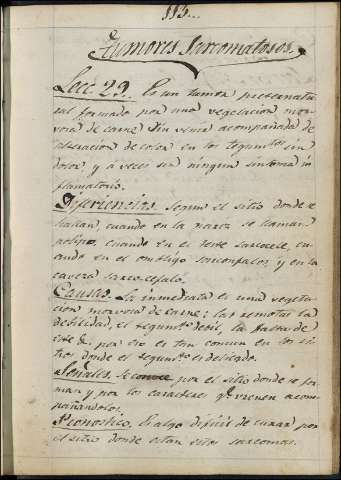 113...
Tumores Sarcomatosos.
Lecc. 29. Es un tumor preternatu-
ral formado por una vegetacion mor-
vosa de carne sin venir acompañada de
alteracion de color en los tegumtos sin
dolor, y á veces sin ningun sintoma in
flamatorio.
Diferiencias. Segun el sitio donde se
hallan, cuando en la nariz se llaman
polipo, cuando en el teste sarcocele, cu-
ando en el ombligo sarconfalos y en la
cavera sarcocefalo.
Causas. La inmediata es una vegeta-
cion morvosa de carne: las remotas la
debilidad, el tegumto debil, la falta de
este &. por eso es tan comun en los si-
tios donde el tegumto es delgado.
Señales. Se conoce por el sitio donde se for
man y por los caracteres qe vienen acom-
pañandolos.
Pronostico. Es algo dificil de curar por
el sitio donde estan estos sarcomas.